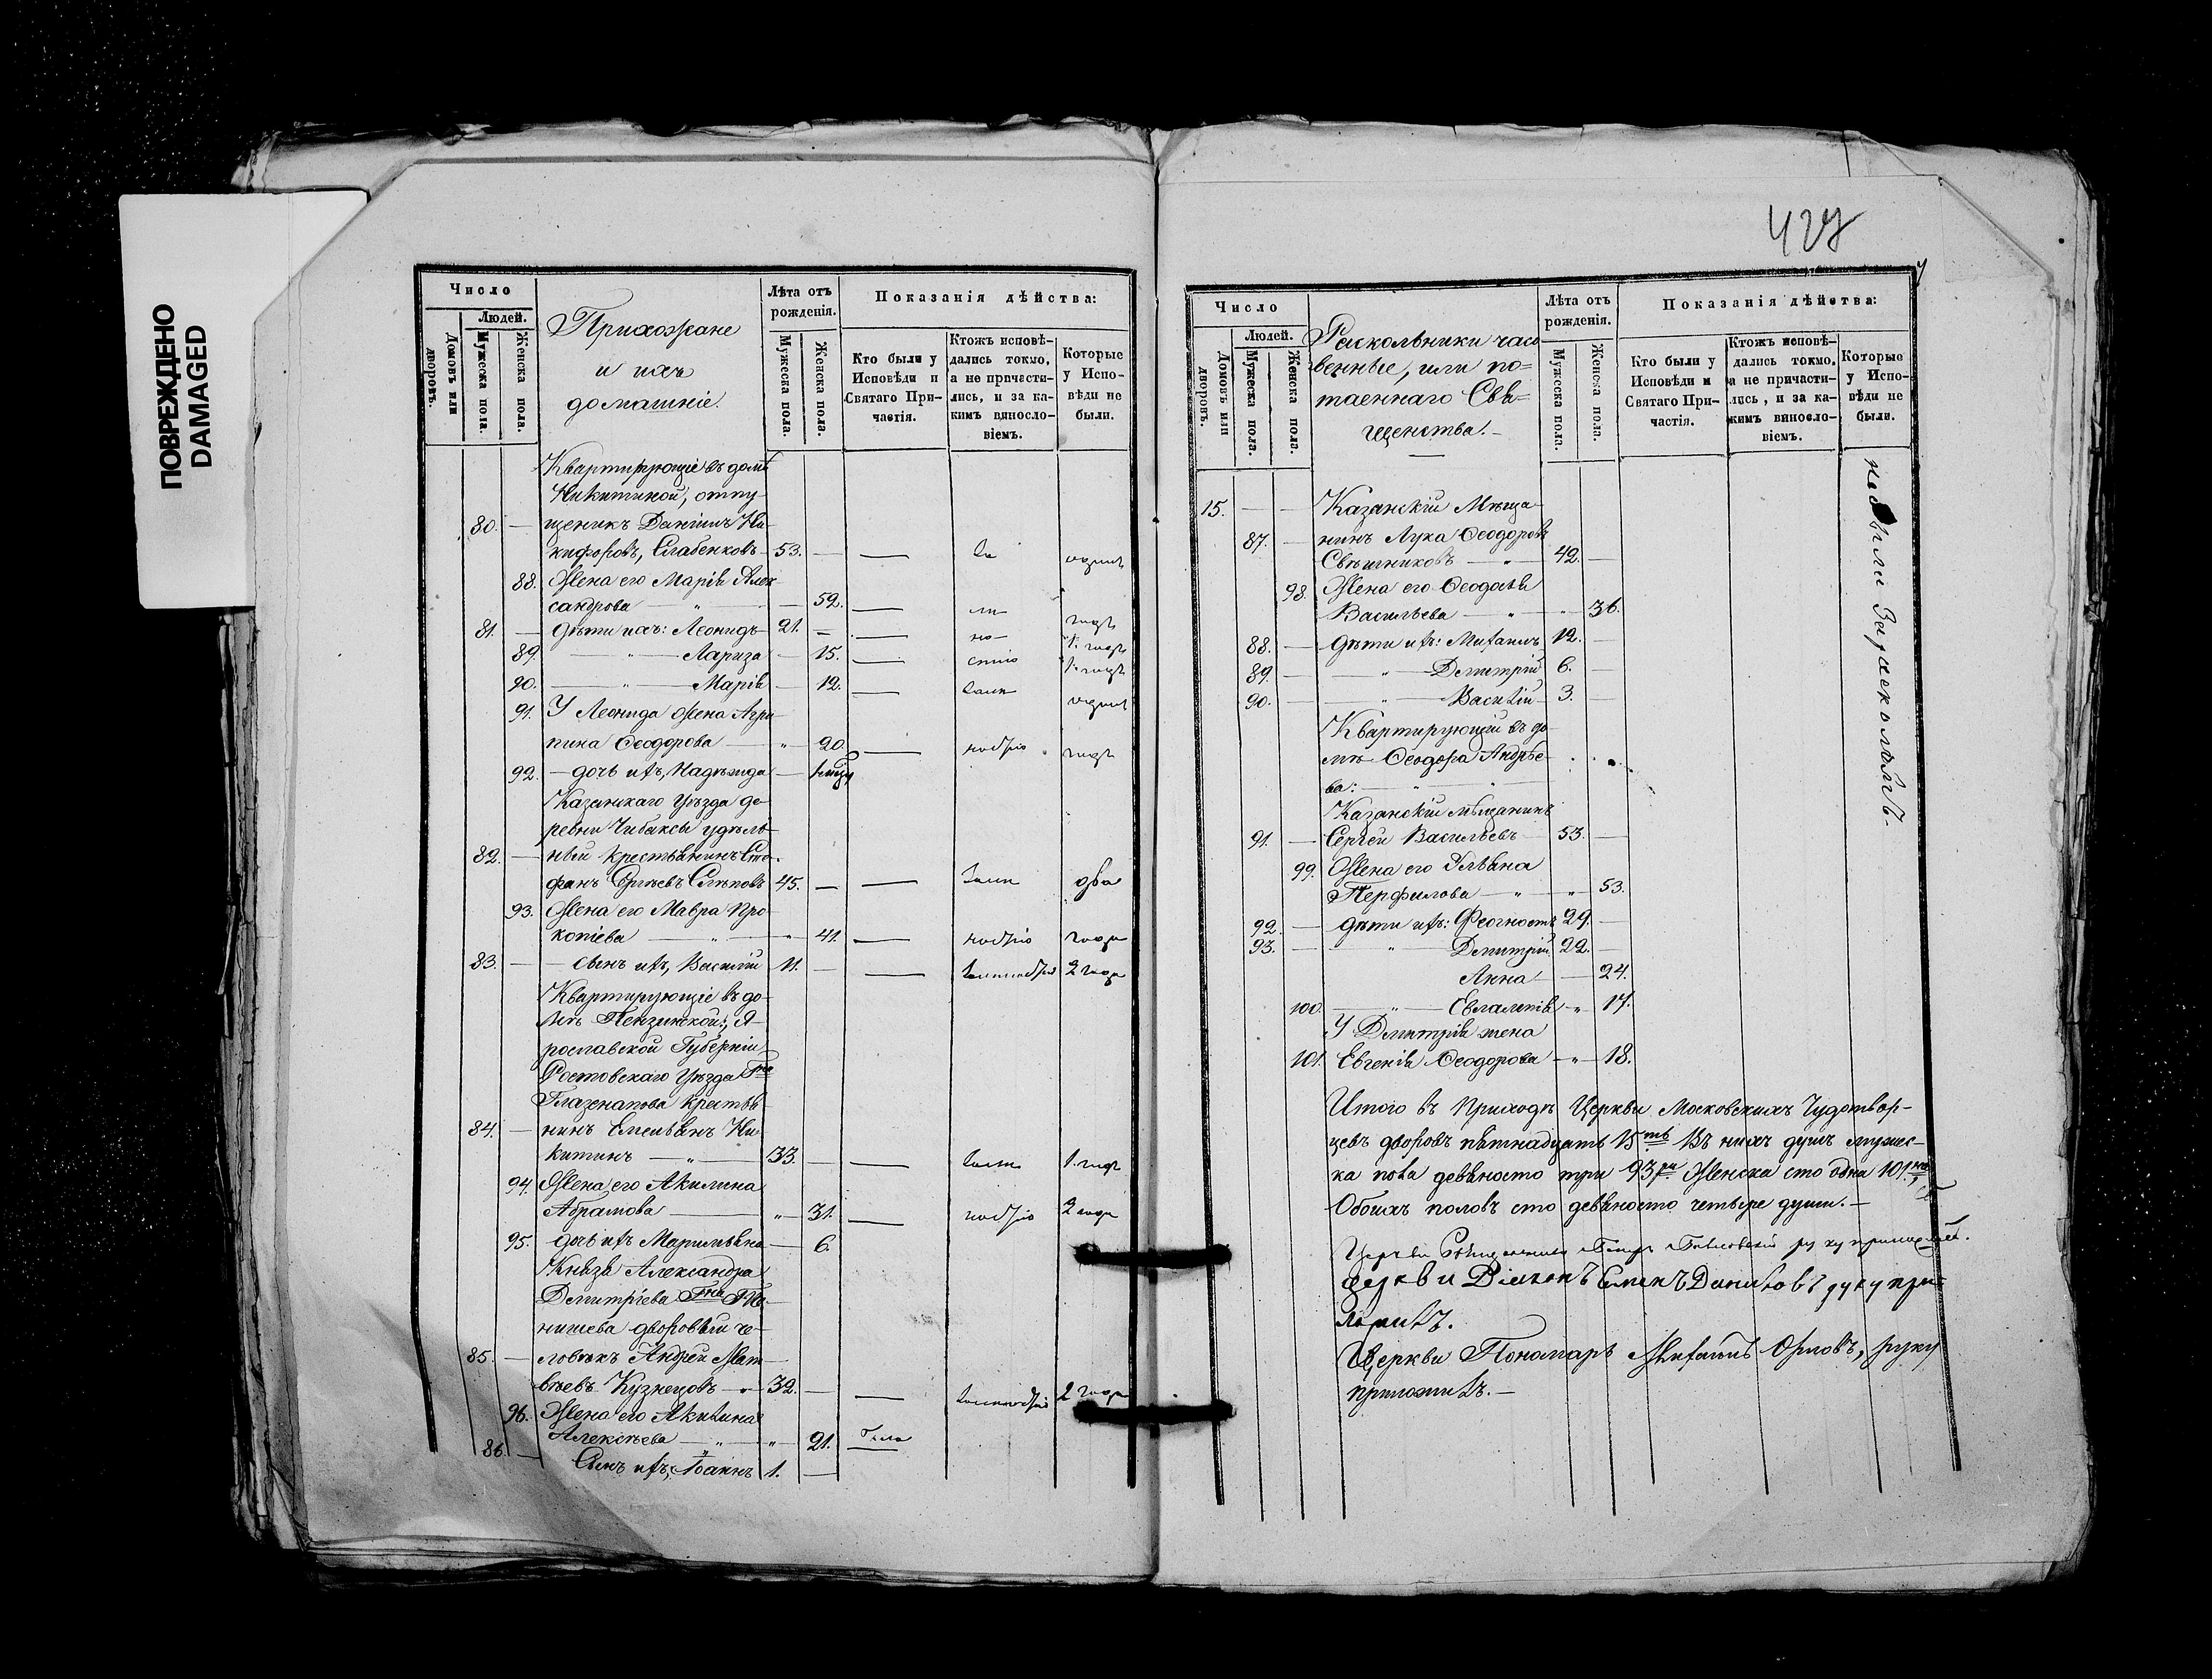 ПОВРЕЖДЕНО
DAMAGED
Число
Людей.
Домовъ или дворовъ.
Мужеска пола.
Женска пола.
Прихожане
и ихъ
домашніе.
Лѣта отъ рожденія.
Мужеска пола.
Женска пола.
Показанія дѣйства:
Кто были у Исповѣди и Святаго Причастія.
Ктожъ исповѣдались токмо, а не причастились, и за какимъ винословіемъ.
Которые у Исповѣди не были.
Квартирующіе въ домѣ
Никитиной, отпу-
80. — щеникъ Даніилъ Ни-
кифоровъ, Слабенковъ 53. —
88. Жена его Марія Алек
сандрова — „ — 52.
81. — Дѣти ихъ: Леонидъ 21. —
89. — „ — Лариза — 15.
90. — „ — Марія — 12.
91. У Леонида жена Агри-
пина Ѳеодорова — „ 20.
92. — дочь ихъ, Надежда —
Казанскаго Уѣзда де-
ревни Чибаксы удѣль-
82. — ный крестьянинъ Сте-
фанъ Сергѣевъ Слѣповъ 45. — — два
93. Жена его Мавра Про
копіева — „ — „ 41. — года
83. — сынъ ихъ, Василій 11. — — 2 года
Квартирующіе въ до-
мѣ Пензинской:, Я-
рославской Губерніи
Ростовскаго Уѣзда Гна
Глазенапова крестья
84. — нинъ Емельянъ Ни-
китинъ — „ — 33. — — 1. годъ
94. Жена его Акилина
Абрамова — „ 31. — 2 года
95. дочь ихъ Мариміяна — 6.
Князя Александра
Дмитріева Гна Те-
нишева дворовый че-
85. — ловѣкъ Андрей Мат-
вѣевъ Кузнецовъ „ 32. — — 2 года
96. Жена его Акилина
Алексѣева — „ — „ 21. Была
86. — Сынъ ихъ, Іоаннъ 1. —
427
Число
Людей.
Домовъ или дворовъ.
Мужеска пола.
Женска пола.
Раскольники часо
венные, или по=
таеннаго Свя=
щенства. —
Лѣта отъ рожденія.
Мужеска пола.
Женска пола.
Показанія дѣйства:
Кто были у Исповѣди и Святаго Причастія.
Ктожъ исповѣдались токмо, а не причастились, и за какимъ винословіемъ.
Которые у Исповѣди не были.
не были За расколомъ.
15. — — Казанскій Мѣща-
87. — нинъ Лука Ѳеодоровъ
Свѣшниковъ — „ 42. —
98. Жена его Ѳеодосья
Васильева — „ — „ 36.
88. — дѣти ихъ: Михаилъ 12. —
89. — „ — Дмитрій 6. —
90. — „ — Василій 3. —
Квартирующій въ до-
мѣ Ѳеодора Андрѣе-
ва: — „
Казанскій мѣщанинъ
91. — Сергей Васильевъ 53. —
99. Жена его Ульяна
Перфилова — „ — „ 53.
92. — дѣти ихъ: Феогностъ 29. —
93. — „ — Дмитрій 22. —
Анна — 24.
100. — „ — Евлампія „ 17.
У Дмитрія жена
101. Евгенія Ѳеодорова — „ 18.
Итого въ Приходѣ Церкви Московскихъ Чудотвор-
цевъ дворовъ пятнадцать 15ть Въ нихъ душъ мужес-
ка пола девяносто три 93ри Женска сто одна 101на,
Обоихъ половъ сто девяносто четыре души. —
Церкви Священникъ Петръ руку приложилъ.
Церкви Діаконъ Симеонъ Даниловъ руку при-
ложилъ.
Церкви Пономарь Михаилъ Орловъ, руку
приложилъ. —